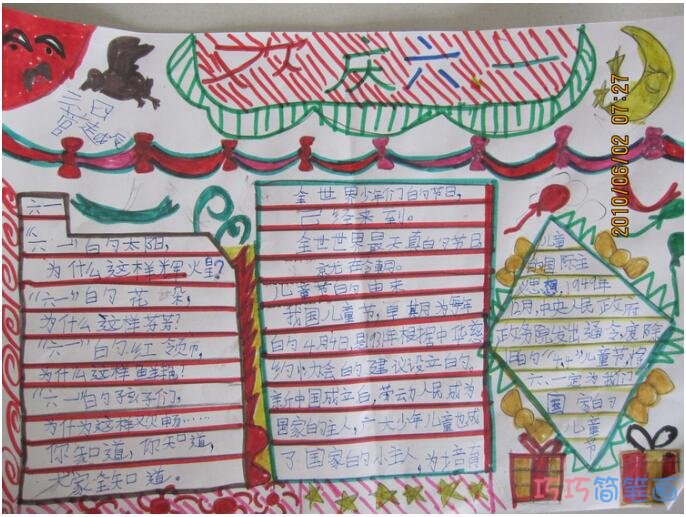 欢庆六一
六一
《六一》的太阳,
为什么这样辉煌?
“六一”的花朵,
为什么这样芬芳?
“六一”的红领巾,
为什么这样鲜艳?
“六一”的孩子们,
为什么这样欢畅……
你知道,你知道,
大家全知道。
全世界少年们的节日,
已经来到。
全世界最天真的节日
就在今朝。
儿童节的由来
我国儿童节,早其月为每年
的4月4日,是1931年根据中华慈
幼协会的建议设立的。
新中国成立后,劳动人民成为
国家的主人,广大少年儿童也成
了国家的小主人,为培育
儿童
的国际主
思想,1949年
12月,中央人民政府
政务院发出通令废除
旧的“4.4”儿童节,将
六、一定为我们
国家的
儿童
节
2010/06/02 07:27
巧巧简笔画